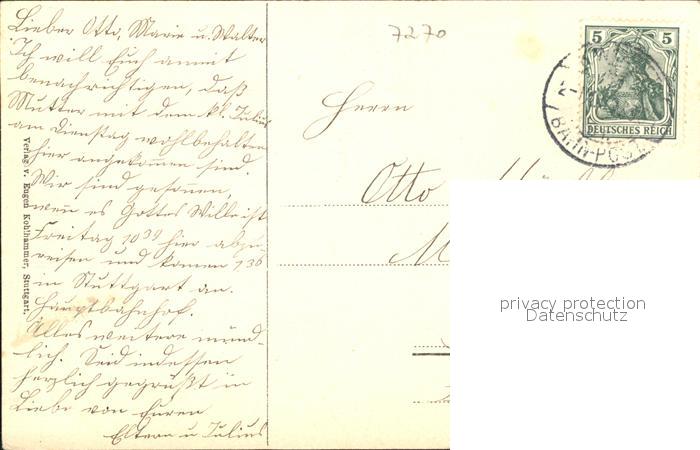 Lieber Otto, Marie u. Walter
Ich will Euch anmit
benachrichtigen, daß
Mutter mit dem kl. Julius
am Dienstag wohlbehalten
hier angekom̄en sind.
Wir sind gesonnen,
wen̄ es Gottes Wille ist
Freitag 10 39 hier abzu-
reisen und kom̄en 1 36
in Stuttgart an.
Hauptbahnhof.
Alles weitere münd-
lich. Seid indessen
herzlich gegrüßt in
Liebe von Euren
Eltern u. Julius
Verlag v. Eugen Kohlhammer, Stuttgart.
7270
5 5
DEUTSCHES REICH
BAHN-POST
Herrn
Otto
M
privacy protection
Datenschutz